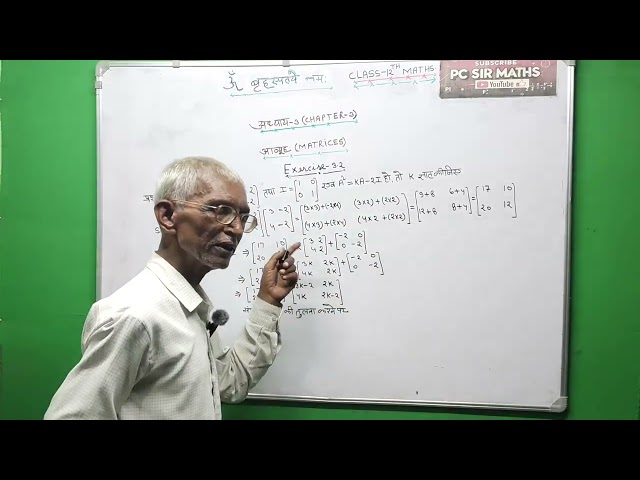 ॐ बृहस्पतये नमः
CLASS-12TH MATHS
SUBSCRIBE
PC SIR MATHS
YouTube
अध्याय-3 (CHAPTER-3)
आव्यूह (MATRICES)
Exercise-3.2
तथा I = [1 0; 0 1] एवं A² = KA-2I हो, तो K ज्ञात कीजिए
[3 -2; 4 -2] = [(3×3)+(-2×4) (3×2)+(2×2); (4×3)+(2×4) (4×2)+(2×2)] = [9+8 6+4; 12+8 8+4] = [17 10; 20 12]
⇒ [17 10; 20 [3 2; 4 2] + [-2 0; 0 -2]
⇒ [17 [3K 2K; 4K 2K] + [-2 0; 0 -2]
⇒ 3K-2 2K; 4K 2K-2]
की तुलना करने पर